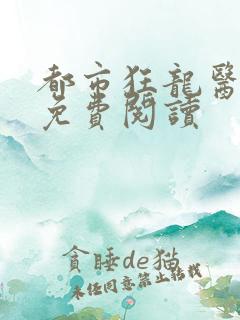 都市狂龍醫
免費閱讀
貪睡de猫
未经同意禁止转载